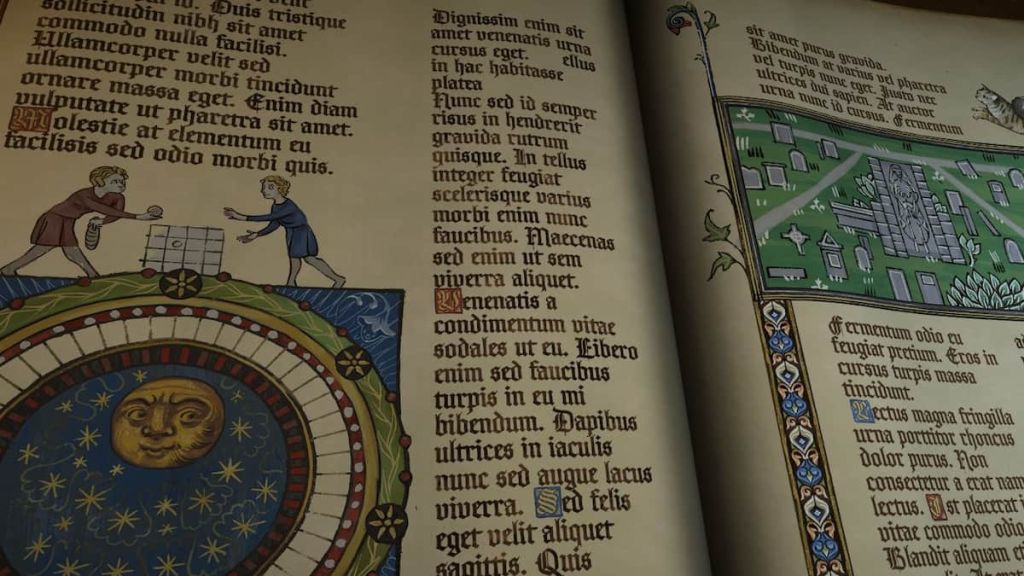 Quis tristique
sollicitudin nibh sit amet
commodo nulla facilisi.
Ullamcorper velit sed
ullamcorper morbi tincidunt
ornare massa eget. Enim diam
vulputate ut pharetra sit amet.
Molestie at elementum eu
facilisis sed odio morbi quis.
Dignissim enim sit
amet venenatis urna
cursus eget. ellus
in hac habitasse
platea
Nunc sed id semper
risus in hendrerit
gravida rutrum
quisque. In tellus
integer feugiat
scelerisque varius
morbi enim nunc
faucibus. Maecenas
sed enim ut sem
viverra aliquet.
Venenatis a
condimentum vitae
sodales ut eu. Libero
enim sed faucibus
turpis in eu mi
bibendum. Dapibus
ultrices in iaculis
nunc sed augue lacus
viverra. Sed felis
eget velit aliquet
sagittis. Quis
sit amet purus gravida.
Bibendum at varius vel pharetra
vel turpis nunc eget. Justo nec
ultrices dui sapien. At auctor
urna nunc id cursus. Fermentum
Fermentum odio eu
feugiat pretium. Eros in
cursus turpis massa
tincidunt.
Lectus magna fringilla
urna porttitor rhoncus
dolor purus. Non
consectetur a erat nam
lectus. Est placerat
vitae commodo odio
Blandit aliquam